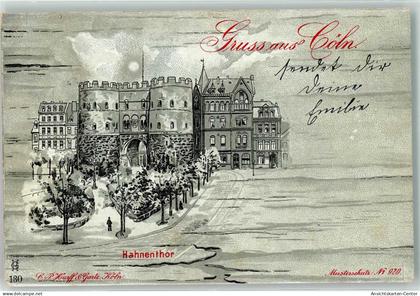 Gruss aus Cöln.
sendet dir
Deine
Emilie
Hahnenthor
130
Köln.
Musterschutz: No 920.
Ansichtskarten-Center